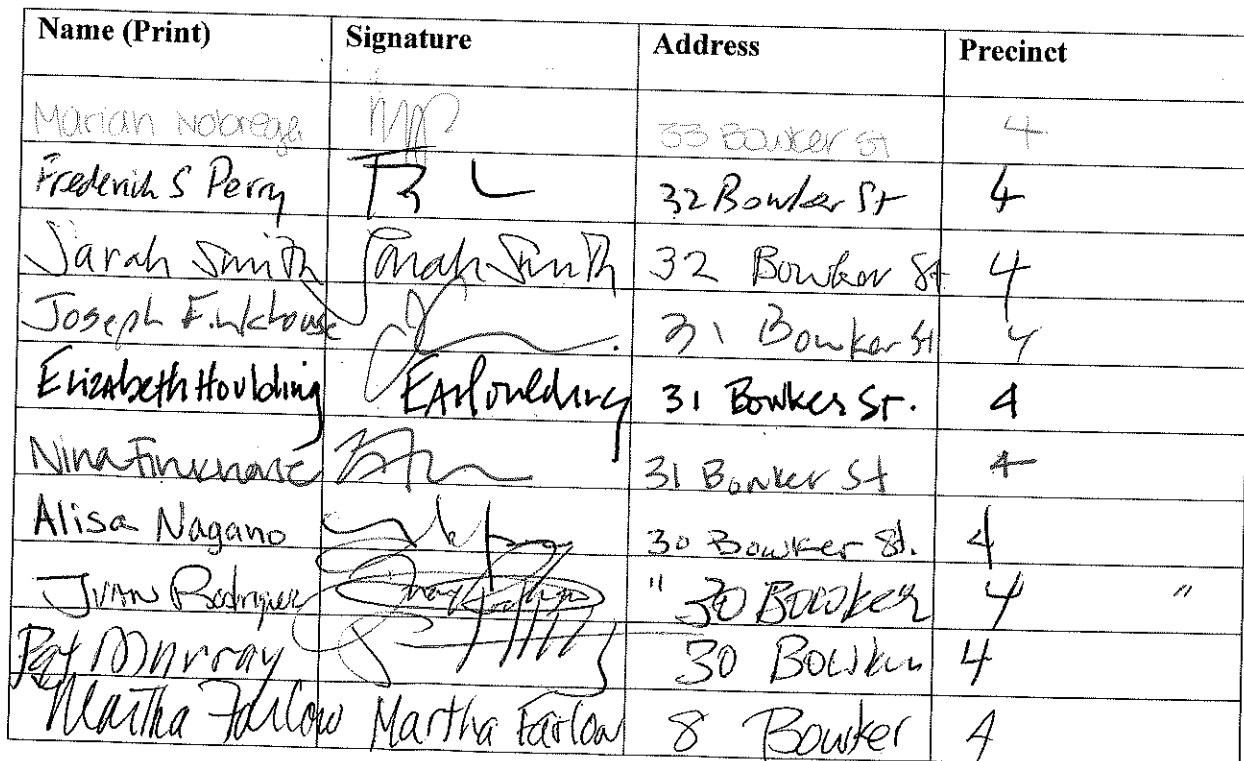 Name (Print) Signature Address Precinct
Marian Nobrega 33 Bowker St 4
Frederick S Perry 32 Bowker St 4
Sarah Smith Sarah Smith 32 Bowker St 4
Joseph Finkhouse 31 Bowker St 4
Elizabeth Houlding EAHoulding 31 Bowker St. 4
Nina Finkhouse 31 Bowker St 4
Alisa Nagano 30 Bowker St. 4
Juan Rodriguez " 30 Bowker 4 "
Pat Murray 30 Bowker 4
Martha Farlow Martha Farlow 8 Bowker 4